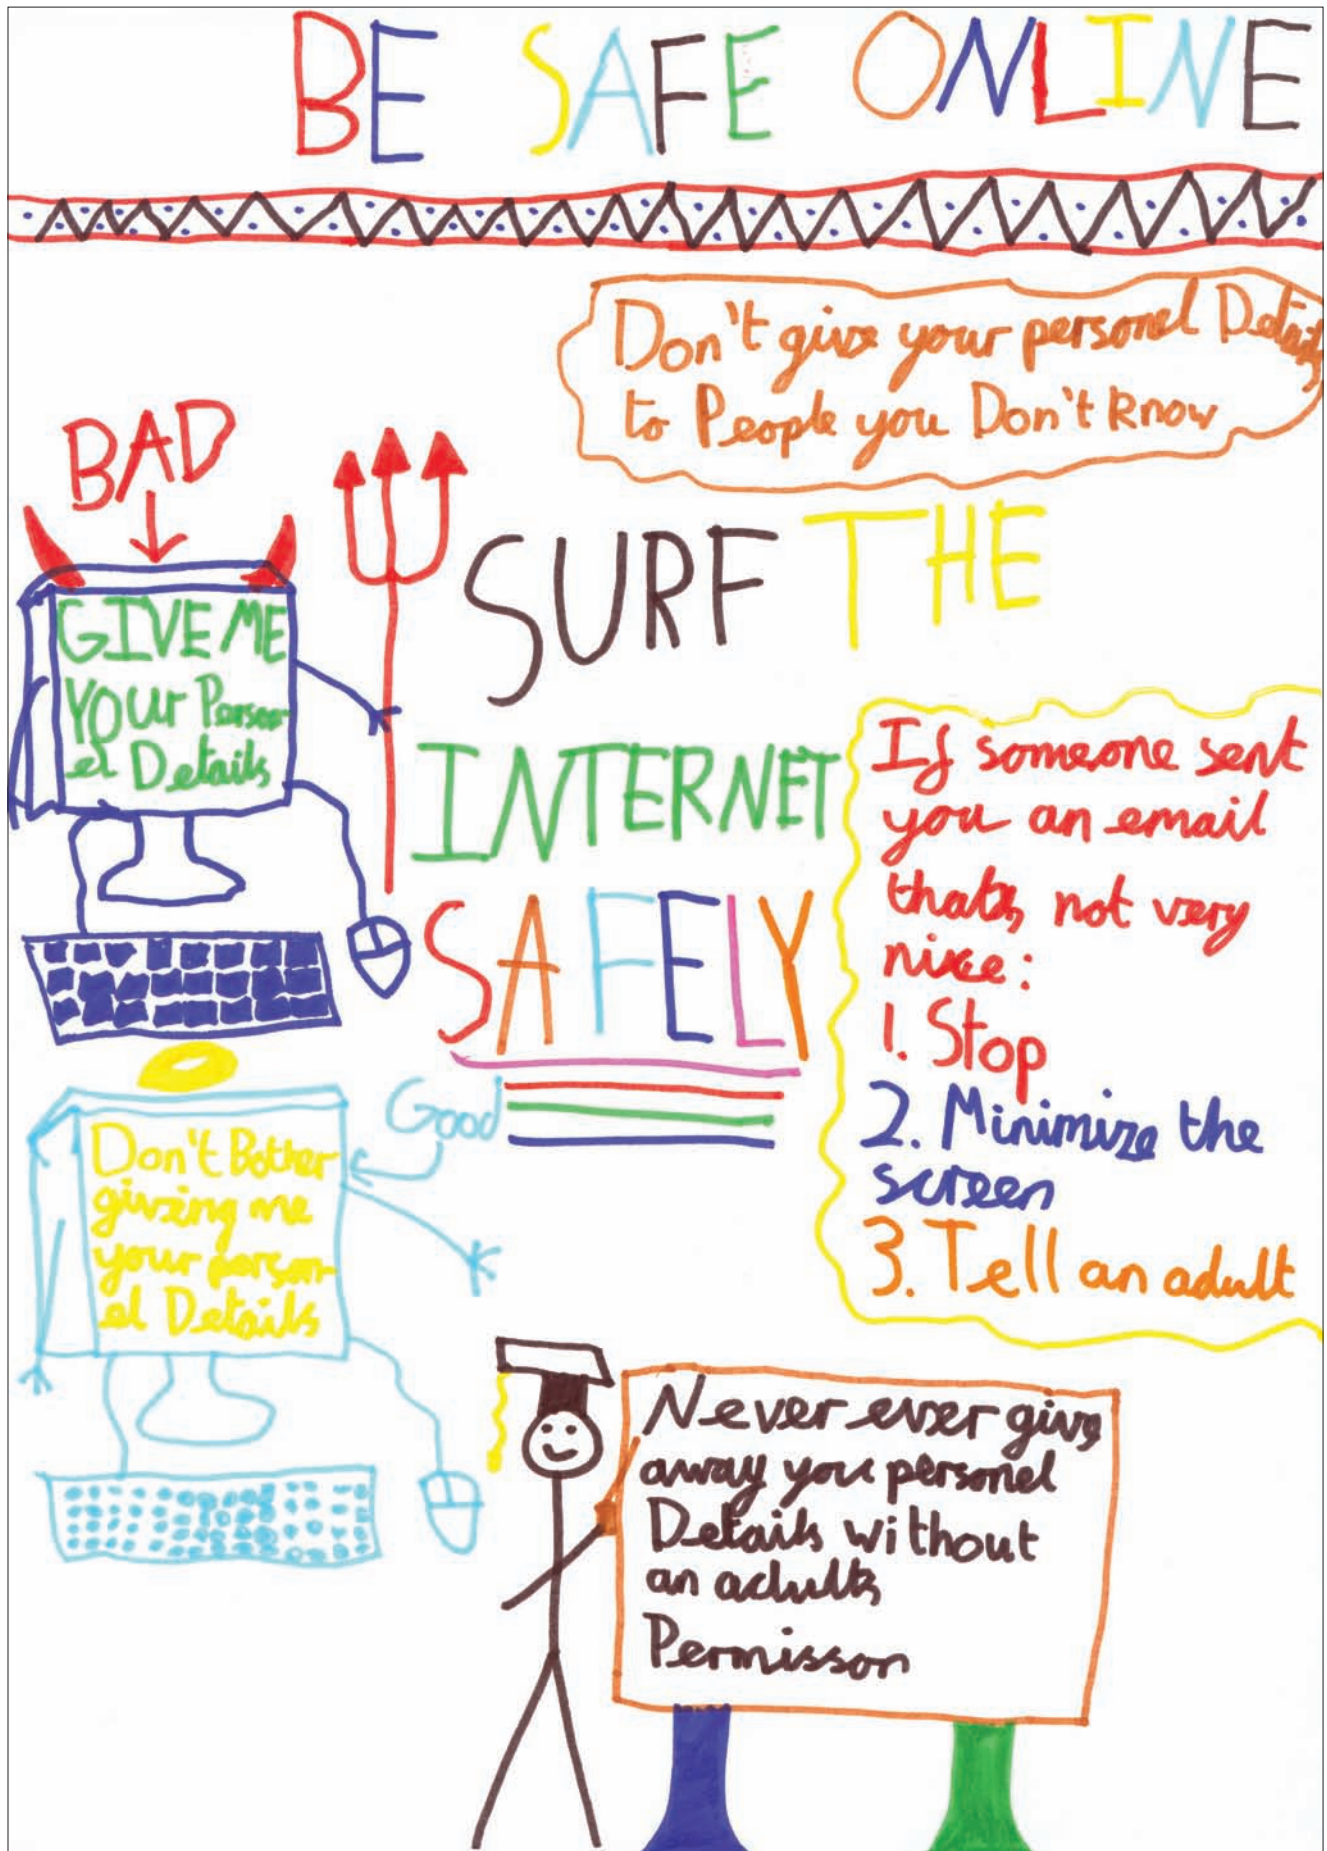 BE SAFE ONLINE
Don't give your personel Details
to People you Don't know
BAD
GIVE ME
YOUr Person-
el Details
SURF THE
INTERNET
SAFELY
If someone sent
you an email
thats not very
nice:
1. Stop
2. Minimize the
screen
3. Tell an adult
Good
Don't Bother
giveing me
your person-
el Details
Never ever give
away you personel
Details without
an adults
Permisson